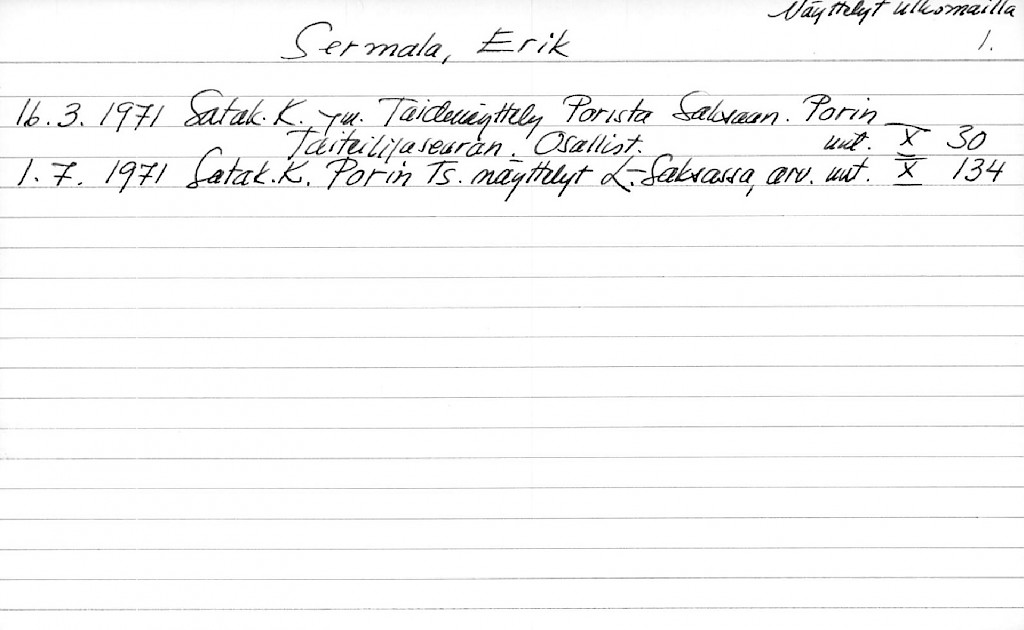 Näyttelyt ulkomailla
Sermala, Erik 1.
16.3. 1971 Satak. K. ym. Taidenäyttely Porista Saksaan. Porin
Taiteilijaseuran. Osallist. uut. X 30
1.7. 1971 Satak. K. Porin Ts. näyttelyt L-Saksassa, arv. uut. X 134